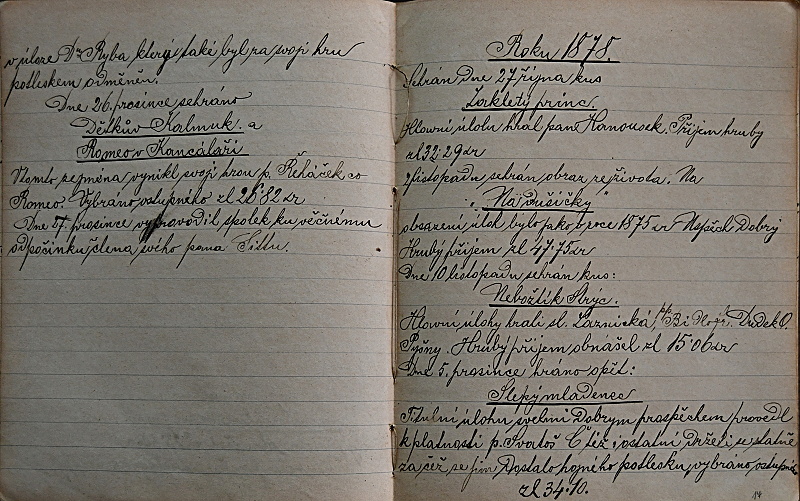 v úloze Dr Ryba který také byl za svoji hru
potleskem odměněn.
Dne 26. prosince sehráno
Dědkův Kalmuk. a
Romeo v Kanceláři
V tomto zejména vynikl svoji hrou p. Řeháček co
Romeo. Vybráno vstupného zl 28·82 kr
Dne prosince vyprovodil spolek ku věčnému
odpočinku člena svého pana
Roku 1878.
Sehrán dne 27 října kus
Zakletý princ.
Hlavní úlohu hrál pan Hanousek. Příjem hrubý
zl 32·29 kr
listopadu sehrán obraz ze života. Na
"Na dušičky"
obsazení úloh bylo jako v roce 1875 Úspěch Dobrý
Hrubý příjem zl 47·75 kr
Dne 10 listopadu sehrán kus:
Nebožtík Strýc.
Hlavní úlohy hráli sl. Laznická, Dudek O.
Pyšný. Hrubý příjem obnášel zl 15·06 kr
Dne 5. prosince hráno opět:
Slepý mládenec
Titulní úlohu velmi Dobrým prospěchem provedl
k platnosti p. Svatoš Č též i ostatní Drželi se statně
za čež se jim Dostalo hojného potlesku, vybráno vstupného
zl 34·10.